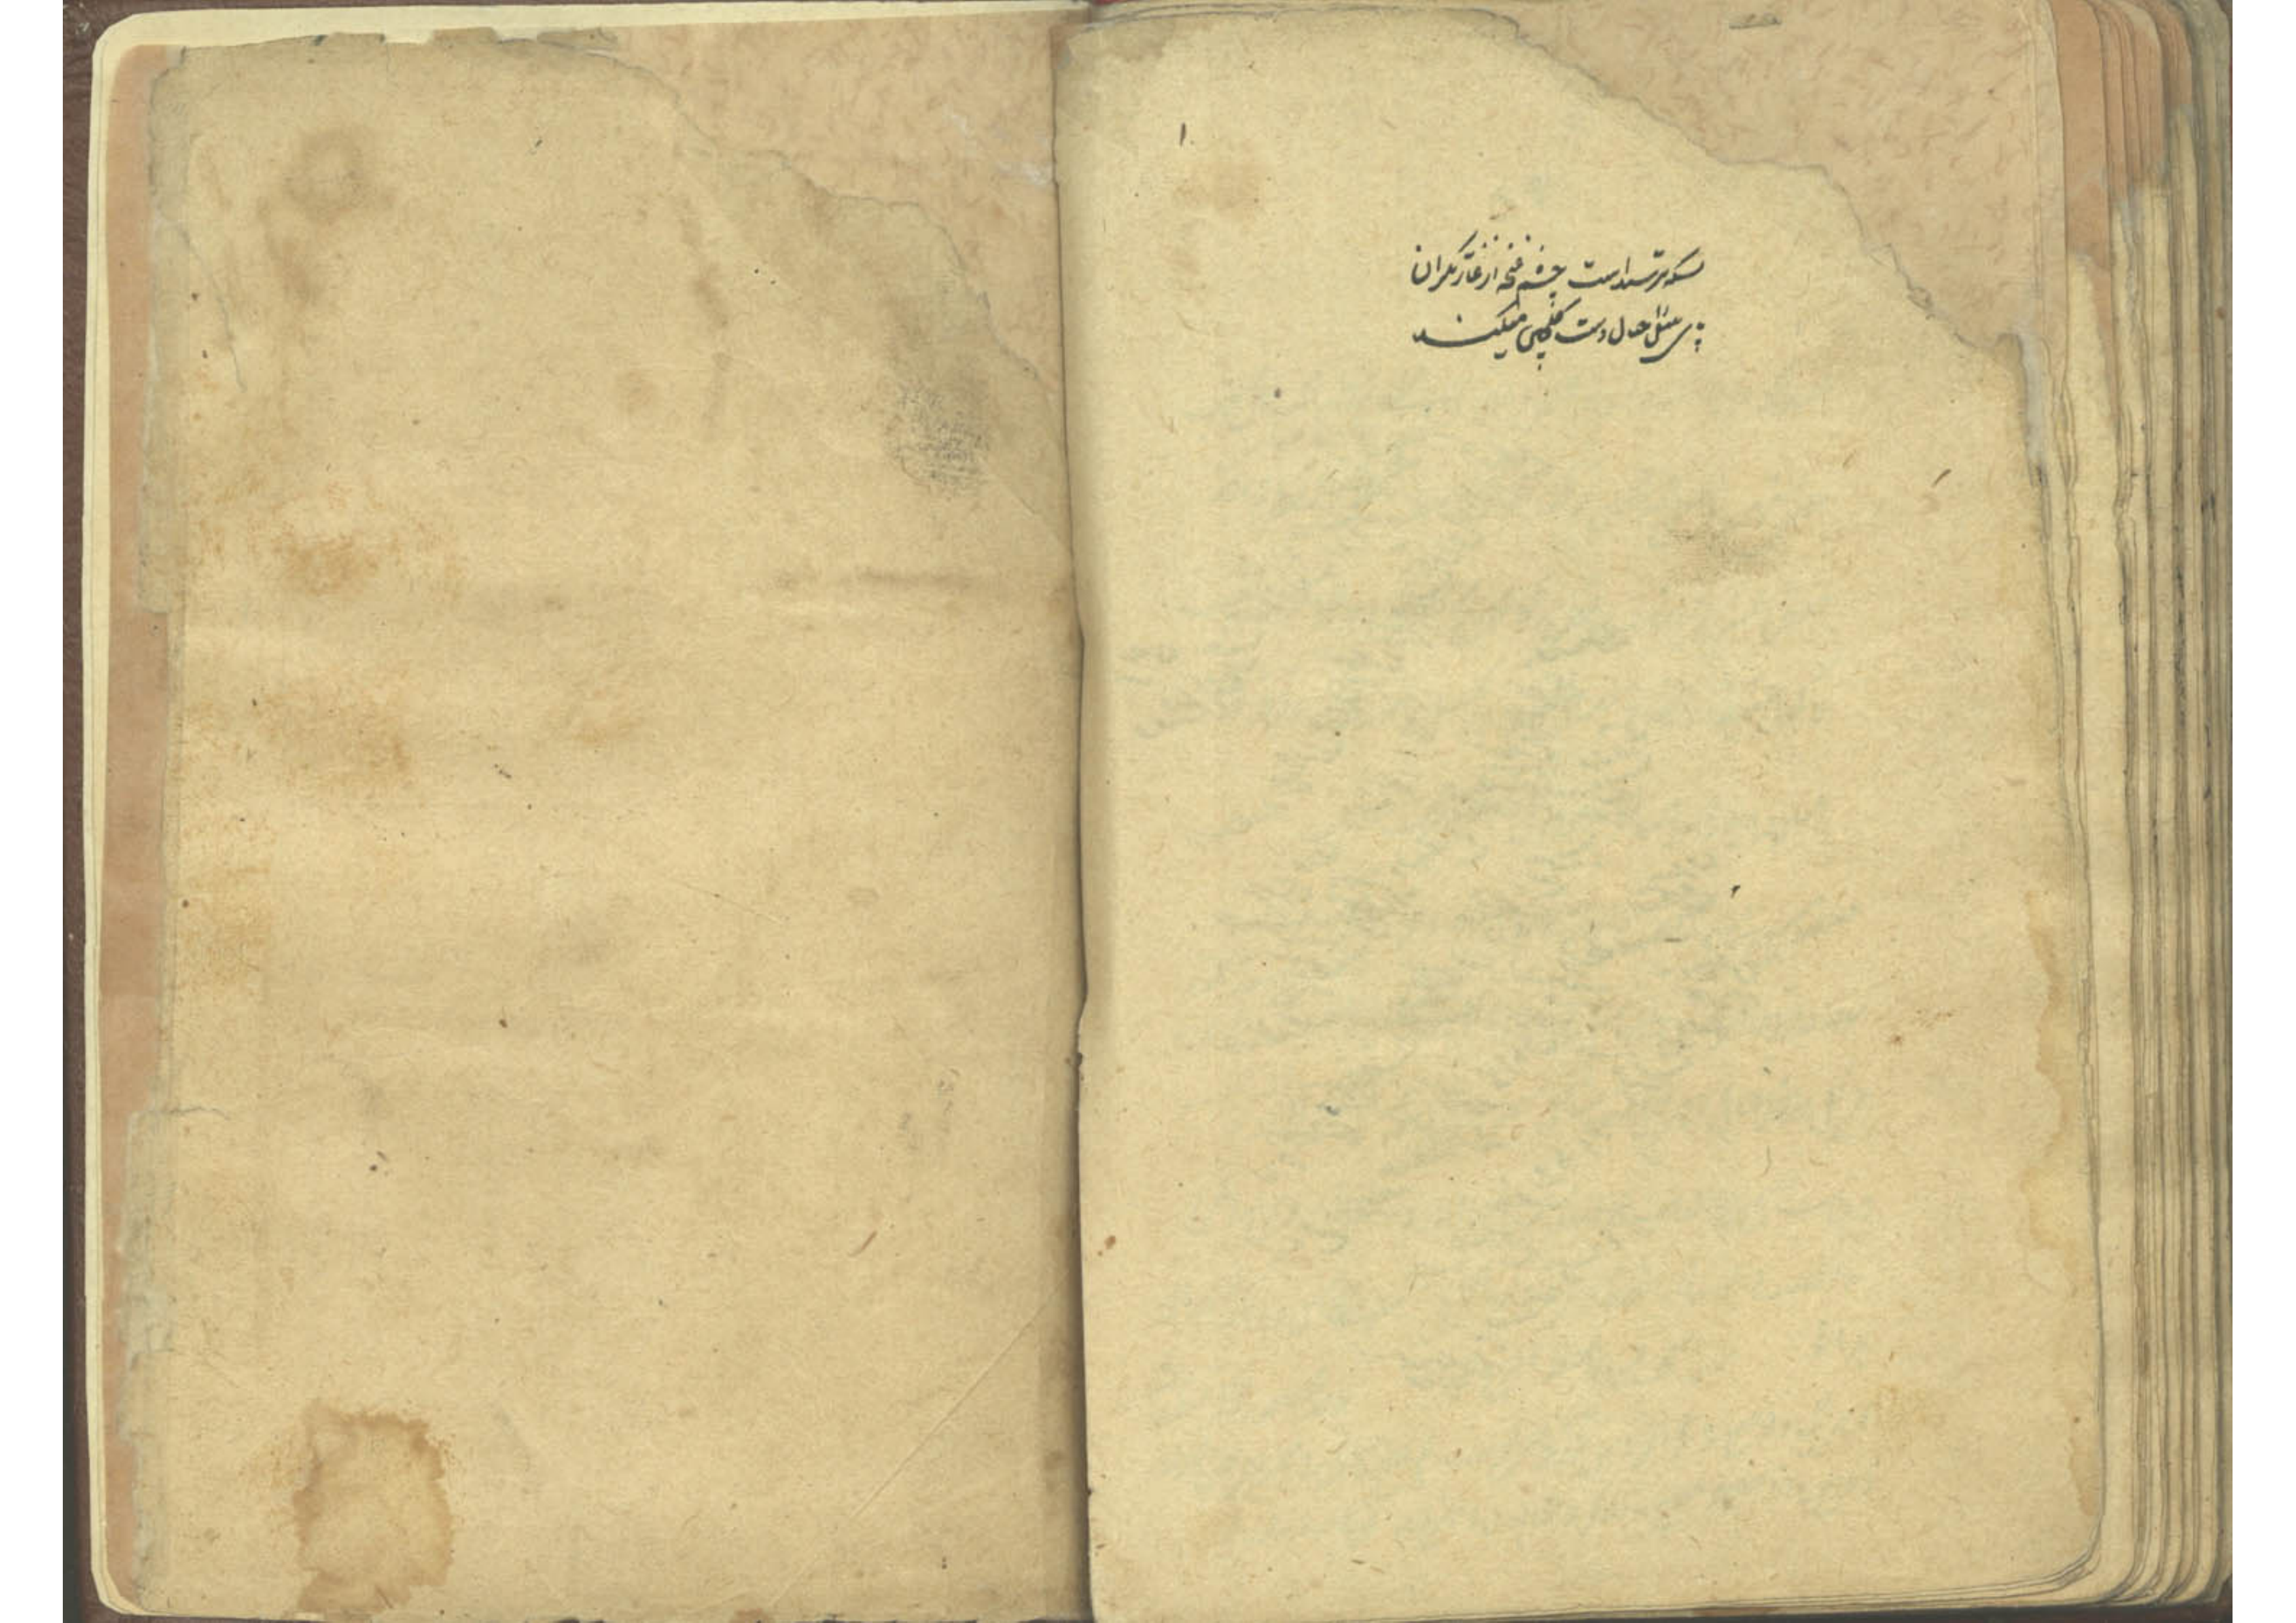 ۱
بسکه ترسیداست چشم غنچه از غارتگران
پای بلبل را خیال دست گلچین میکند